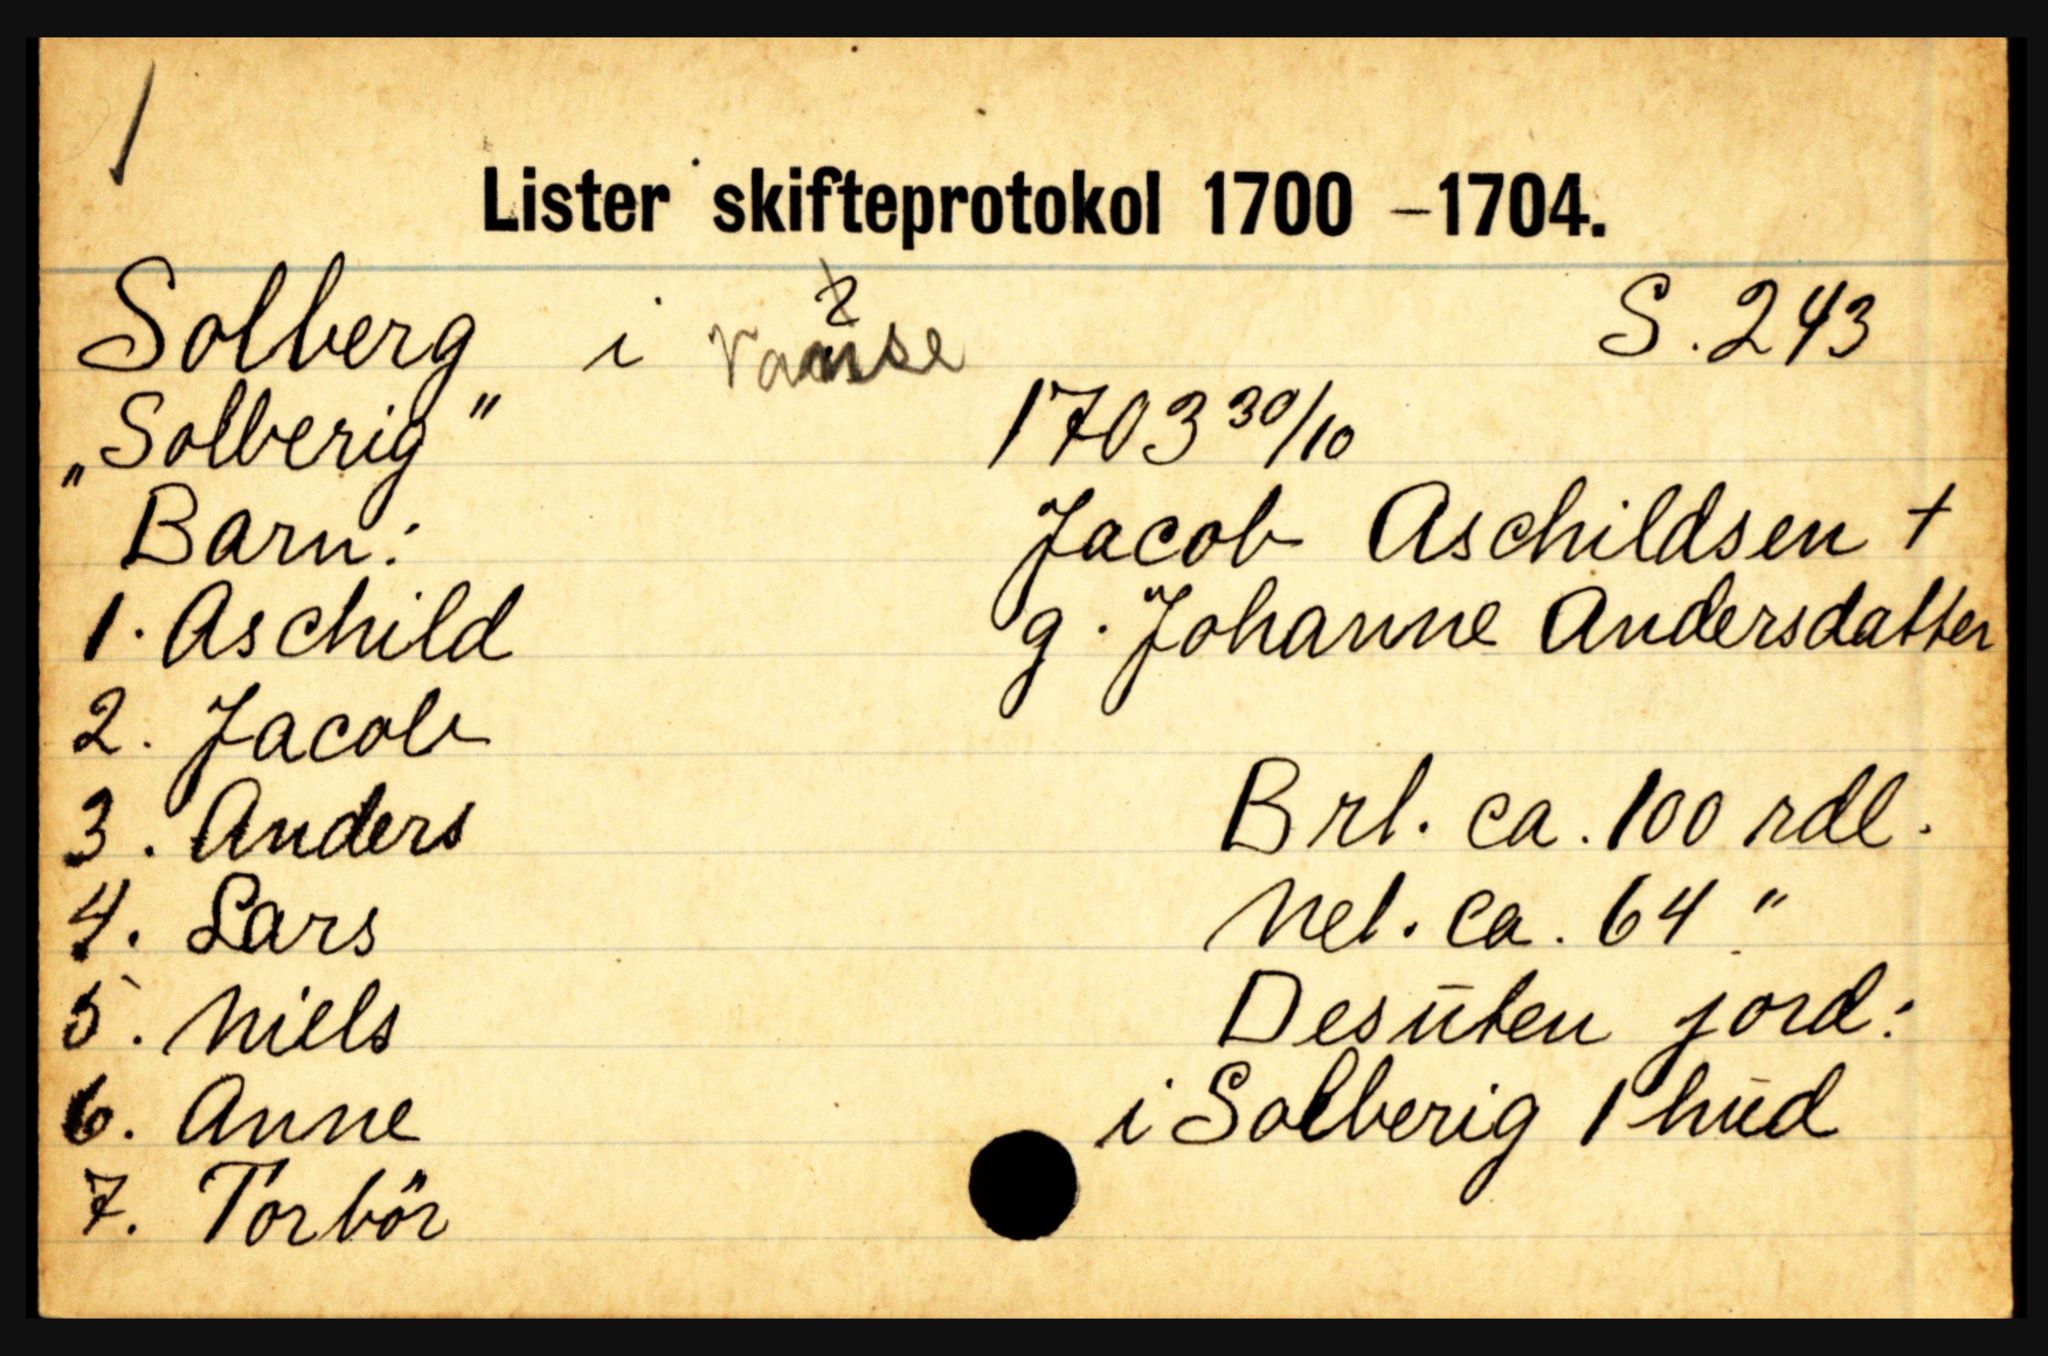 1
Lister skifteprotokol 1700 –1704.
Solberg i Vanse S. 243
?
„Solberig" 1703 30/10
Barn: Jacob Aschildsen +
1. Aschild g. Johanne Andersdatter
2. Jacob
3. Anders Brt. ca. 100 rdl.
4. Lars Net. ca. 64 "
5. Niels Desūten jord:
6. Anne i Solberig 1 hūd
7. Torbör